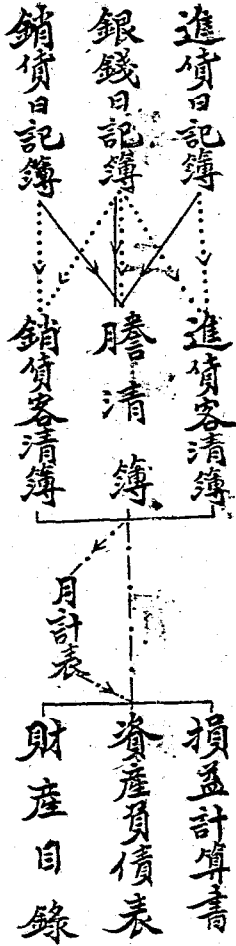 進貨日記簿
銀錢日記簿
銷貨日記簿
進貨客清簿
謄清簿
銷貨客清簿
月計表
損益計算書
資產負債表
財產目錄